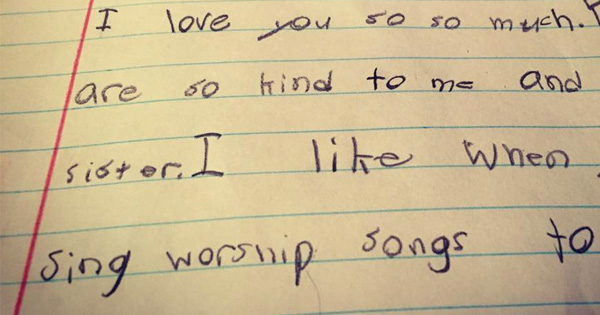 I love you so so much.
are so kind to me and
sister. I like when
sing worship songs to